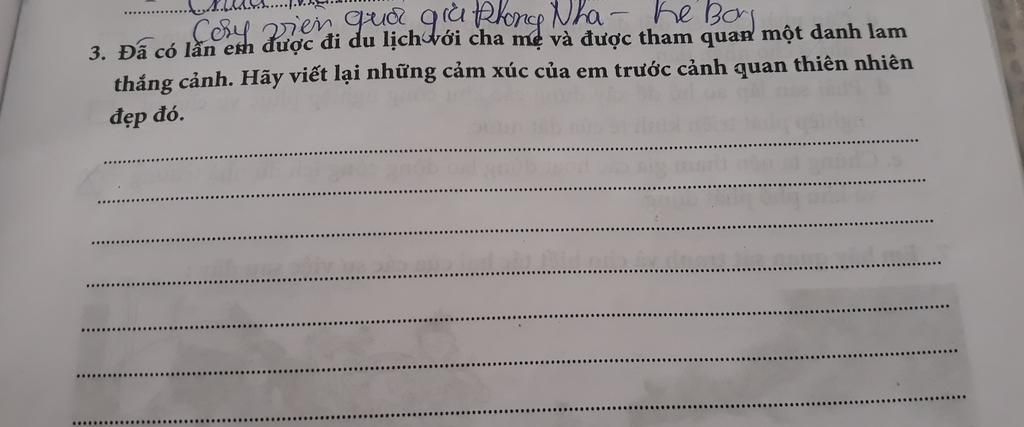 Công viên quốc gia Phong Nha - Kẻ Bàng
3. Đã có lần em được đi du lịch với cha mẹ và được tham quan một danh lam
thắng cảnh. Hãy viết lại những cảm xúc của em trước cảnh quan thiên nhiên
đẹp đó.